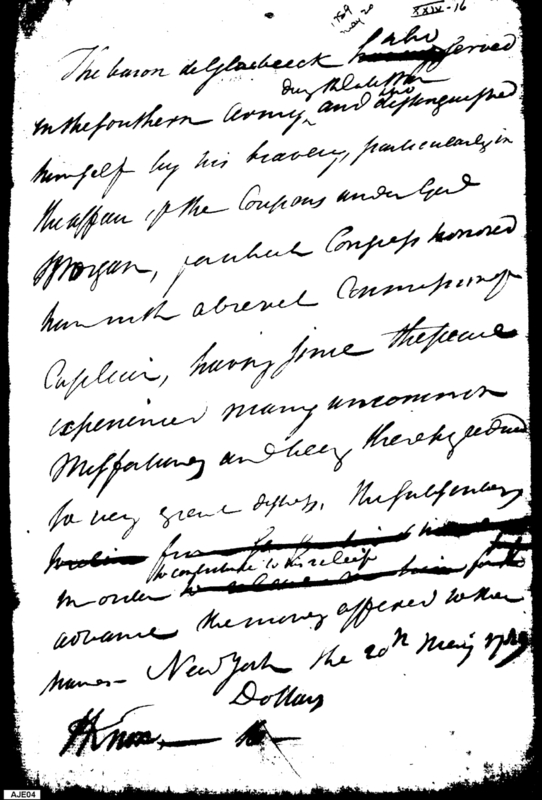 1789
May 20
XXIV-16
The baron de Glaubeeck who served
during the late War
in the southern Army, and who distinguished
himself by his bravery, particularly in
the affair of the Coupens under Genl
Morgan, for which Congress honored
him with a brevet Commission of
Captain, having since the peace
experienced many uncommon
Misfortunes and being thereby reduced
to very great distress, The subscribers
to contribute to his relief
in order
advance the money affixed to their
names— New York the 20th May 1789
Dollars
HKnox,— 10—
AJE04